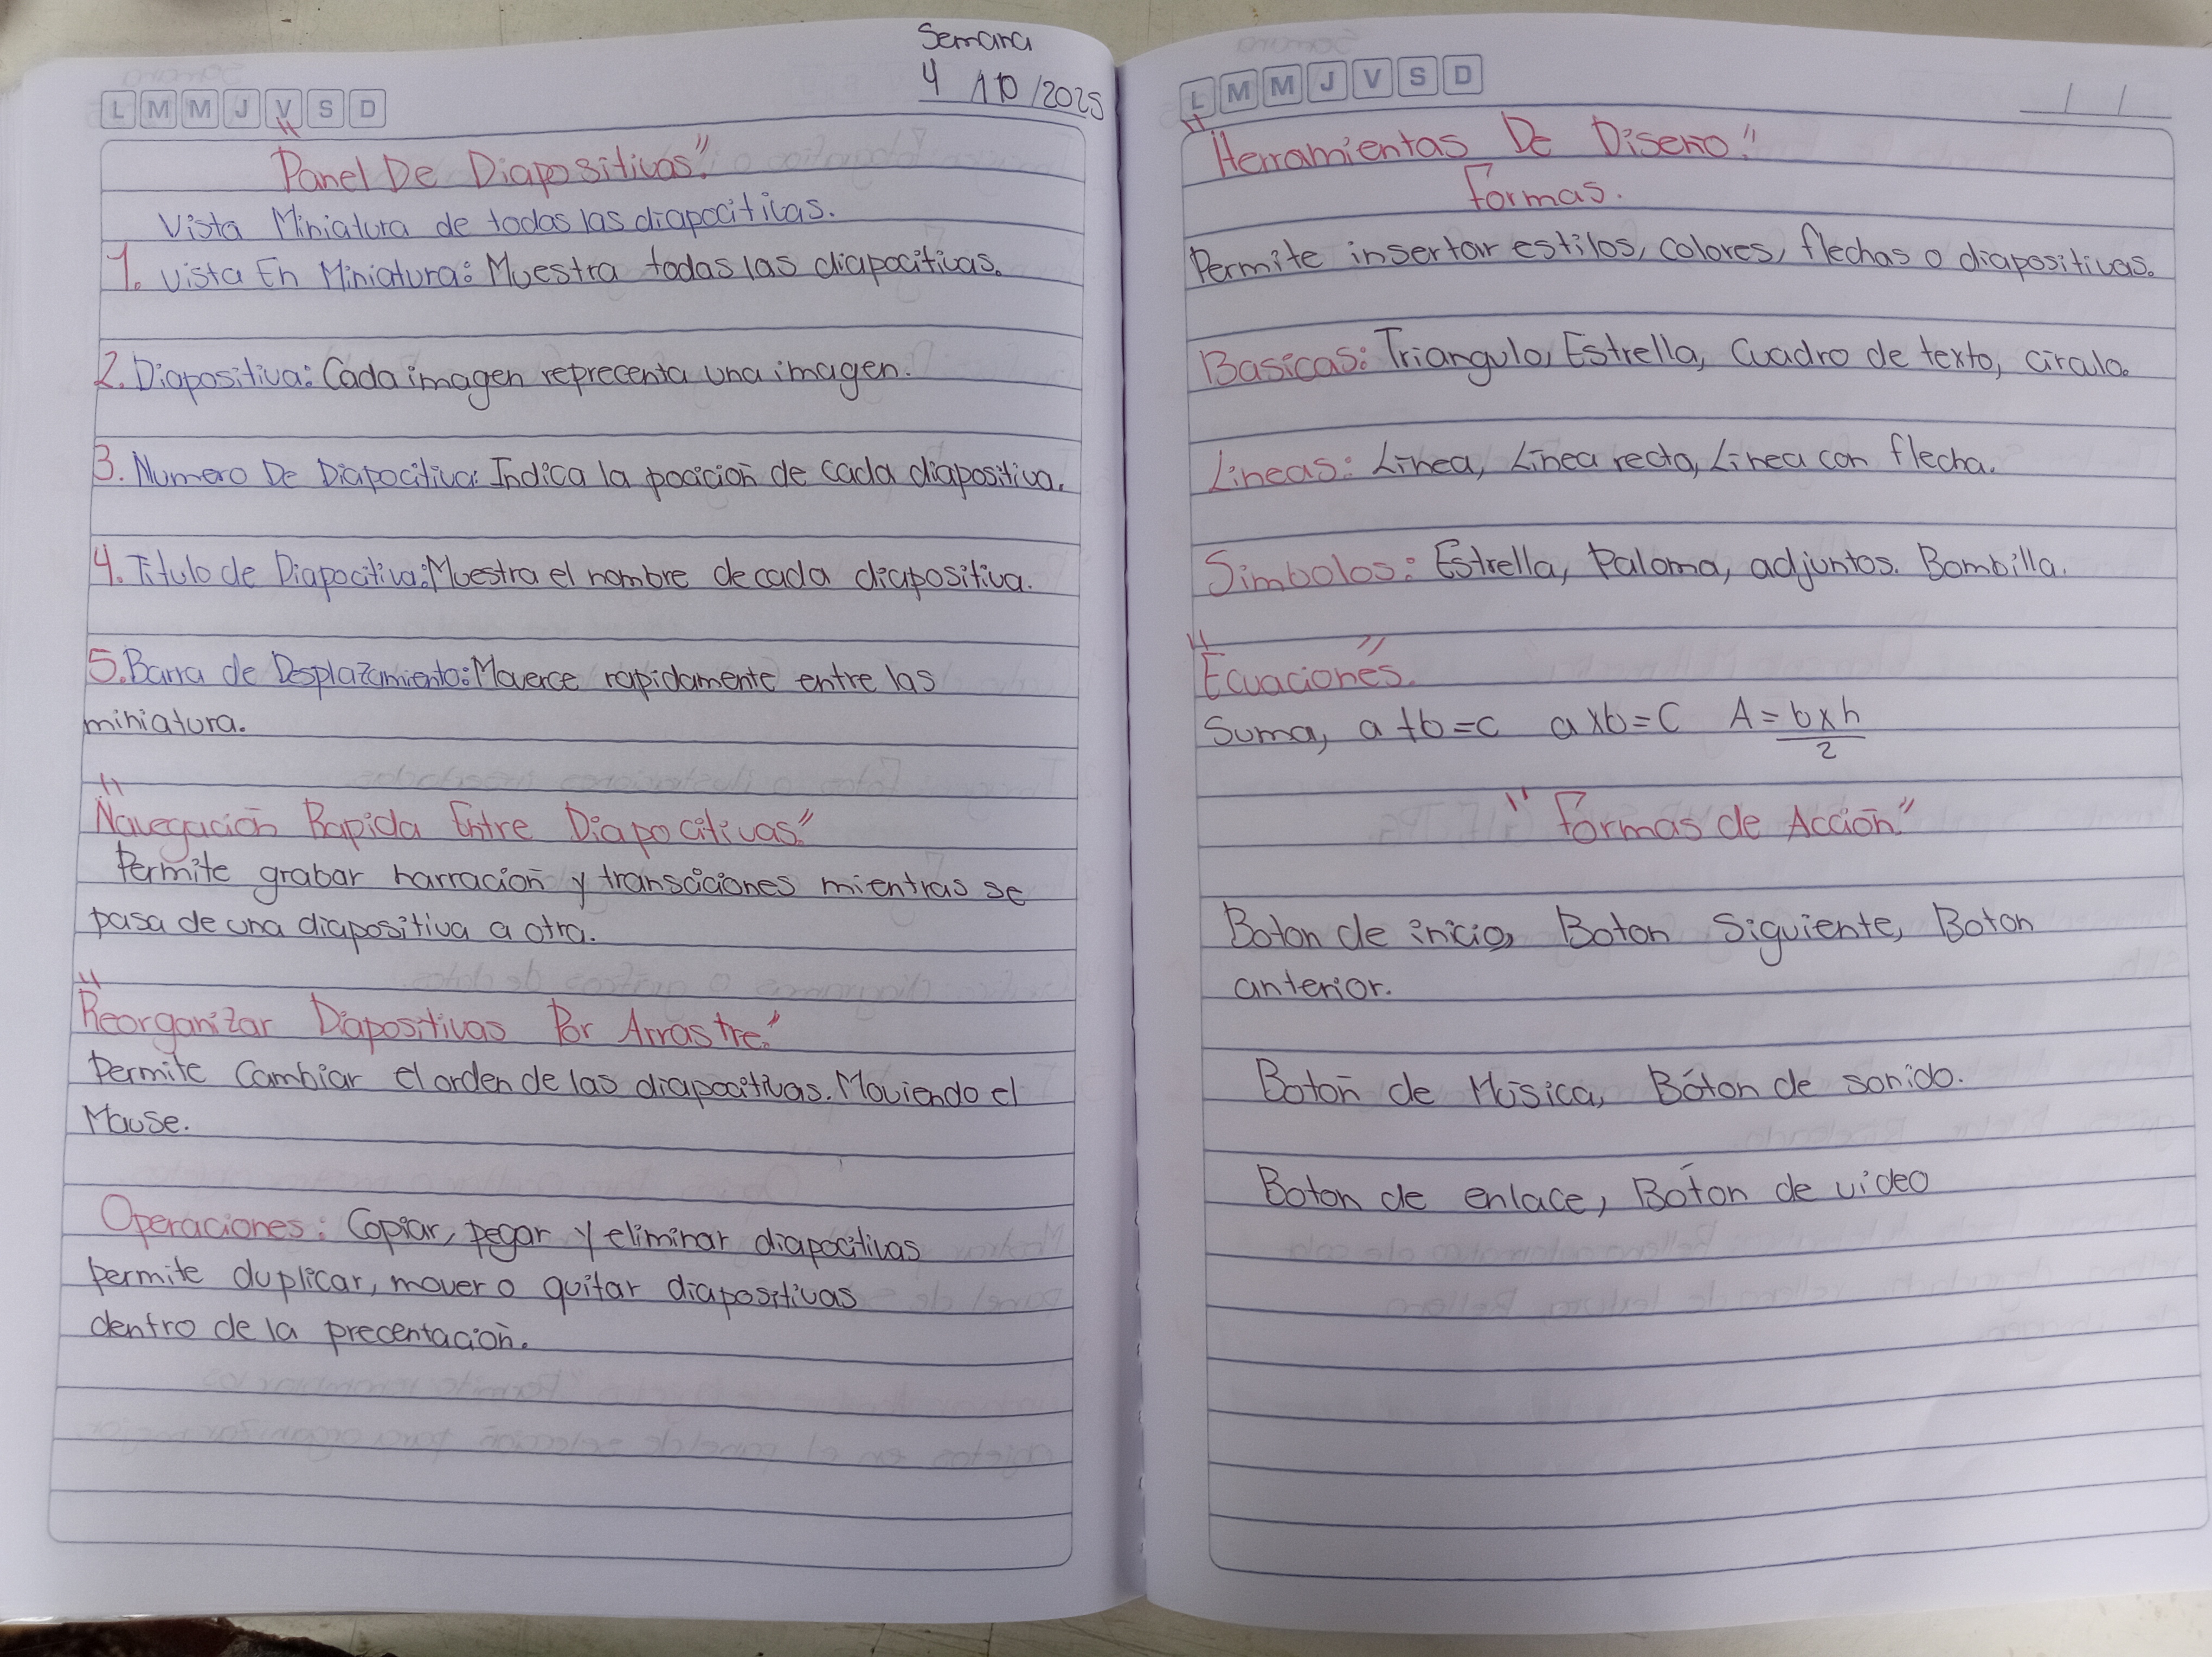 Semana
4 /10/2025
L M M J V S D
"Panel De Diapositivas."
Vista Miniatura de todas las diapociticas.
1. Vista En Miniatura: Muestra todas las diapociticas.
2. Diapositiva: Cada imagen reprecenta una imagen.
3. Numero De Diapocitiva: Indica la pocicion de cada diapositiva.
4. Titulo de Diapocitiva: Muestra el nombre de cada diapositiva.
5. Barra de Desplazamiento: Moverce rapidamente entre las
miniatura.
"Navegación Rapida Entre Diapocitivas."
Permite grabar narracion y transiciones mientras se
pasa de una diapositiva a otra.
"Reorganizar Diapositivas Por Arrastre."
Permite Cambiar el orden de las diapocitivas. Moviendo el
Mause.
Operaciones: Copiar, pegar y eliminar diapocitivas
permite duplicar, mover o quitar diapositivas
dentro de la precentacion.
L M M J V S D
"Herramientas De Diseño."
Formas.
Permite insertar estilos, colores, flechas o diapositivas.
Basicas: Triangulo, Estrella, Cuadro de texto, circulo.
Lineas: Linea, Linea recta, Linea con flecha.
Simbolos: Estrella, Paloma, adjuntos. Bombilla.
"Ecuaciones".
Suma, a+b=c a×b=C A=b×h/2
"Formas de Acción"
Boton de inicio, Boton Siguiente, Boton
anterior.
Botón de Música, Bóton de sonido.
Boton de enlace, Bóton de video